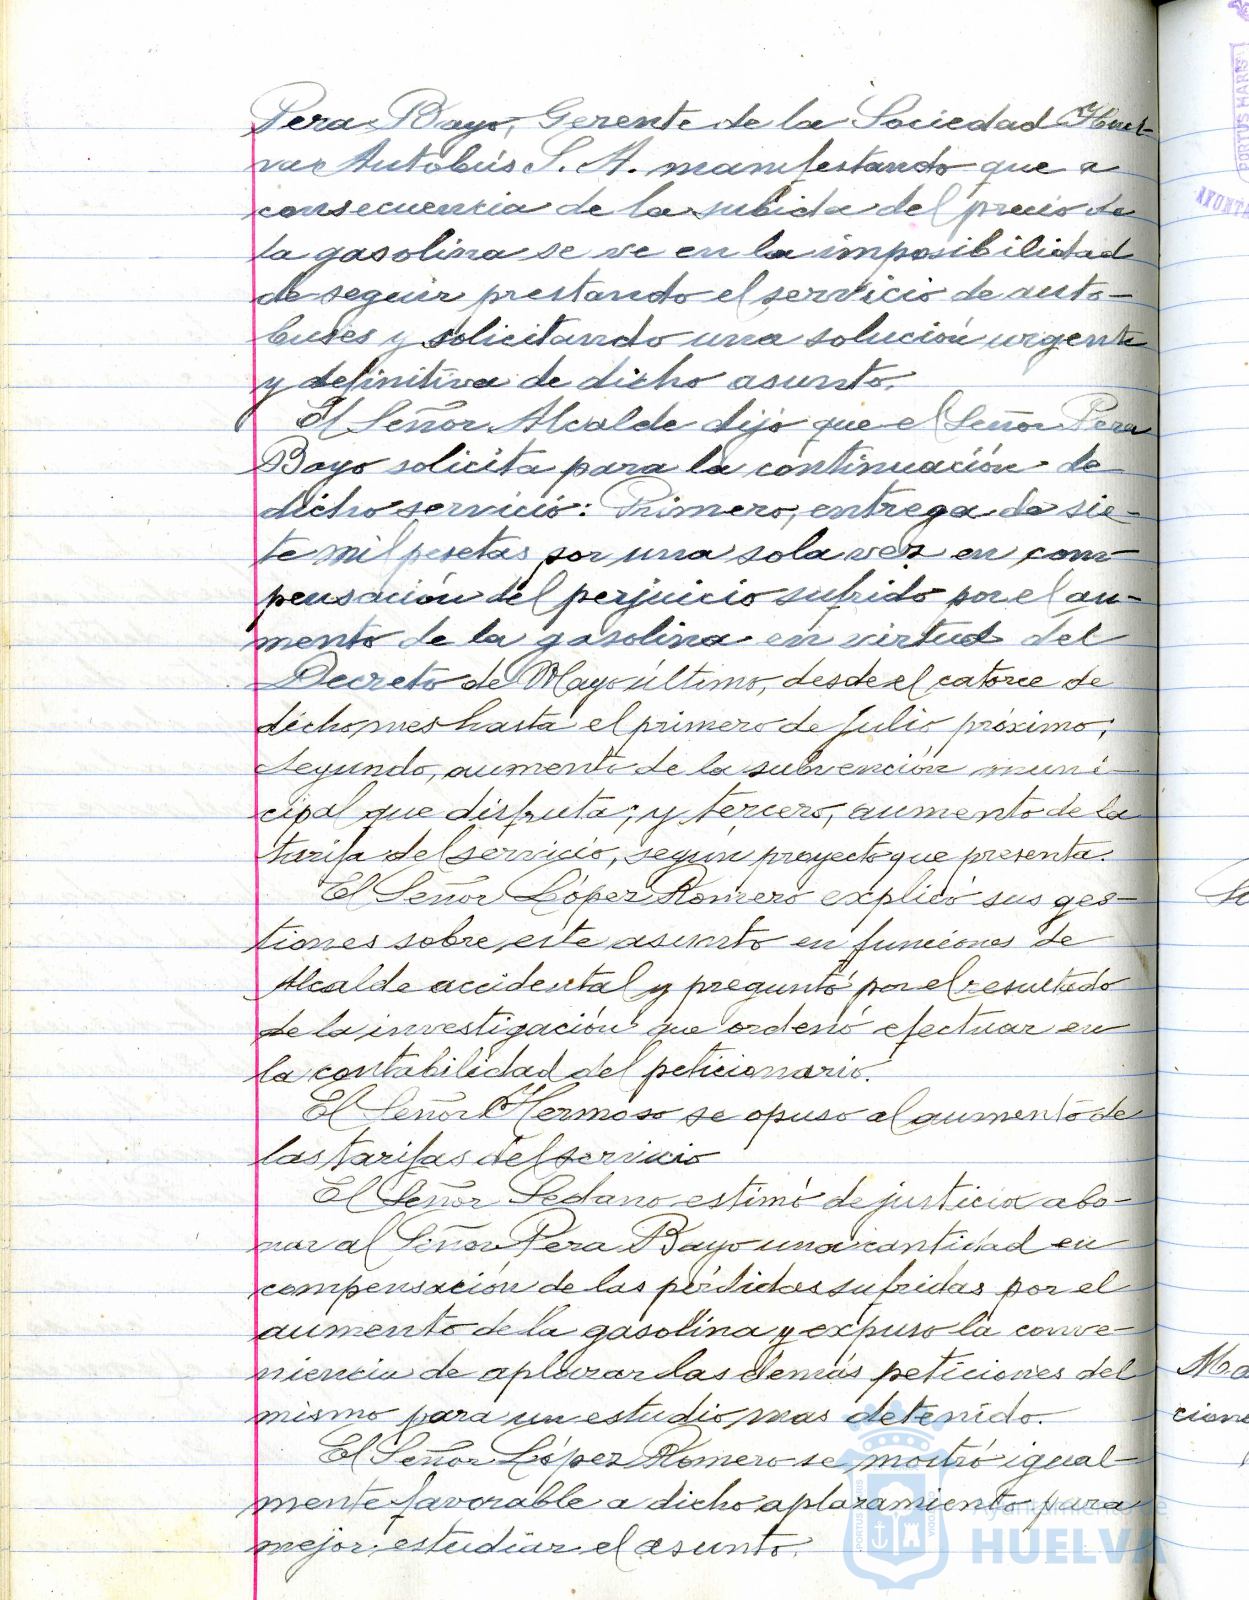 Pera Bayo, Gerente de la Sociedad Huel-
va Autobús S. A. manifestando que a
consecuencia de la subida del precio de
la gasolina se ve en la imposibilidad
de seguir prestando el servicio de auto-
buses y solicitando una solución urgente
y definitiva de dicho asunto.
El Señor Alcalde dijo que el Señor Pera
Bayo solicita para la continuación de
dicho servicio: Primero, entrega de sie-
te mil pesetas por una sola vez en com-
pensación del perjuicio sufrido por el au-
mento de la gasolina en virtud del
Decreto de Mayo último, desde el catorce de
dicho mes hasta el primero de Julio próximo;
Segundo, aumento de la subvención muni-
cipal que disfruta; y tercero, aumento de la
tarifa del servicio, según proyecto que presenta.
El Señor López Romero explicó sus ges-
tiones sobre este asunto en funciones de
Alcalde accidental y preguntó por el resultado
de la investigación que ordenó efectuar en
la contabilidad del peticionario.
El Señor Hermoso se opuso al aumento de
las tarifas del servicio
El Señor Sedano estimó de justicia abo-
nar al Señor Pera Bayo una cantidad en
compensación de las pérdidas sufridas por el
aumento de la gasolina y expuso la conve-
niencia de aplazar las demás peticiones del
mismo para un estudio mas detenido.
El Señor López Romero se mostró igual-
mente favorable a dicho aplazamiento para
mejor estudiar el asunto.
Ayuntamiento de
HUELVA
PORTUS MARIS
CUSTODIA
PORTUS MARIS
AYUNTA
Ma
cione